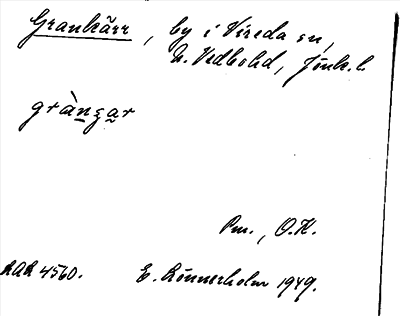 Grankärr, by i Vireda sn,
N. Vedbohd, Jönk. l.
gràngar
Pm., O.H.
RAÄ 4560. E. Rönnerholm 1949.